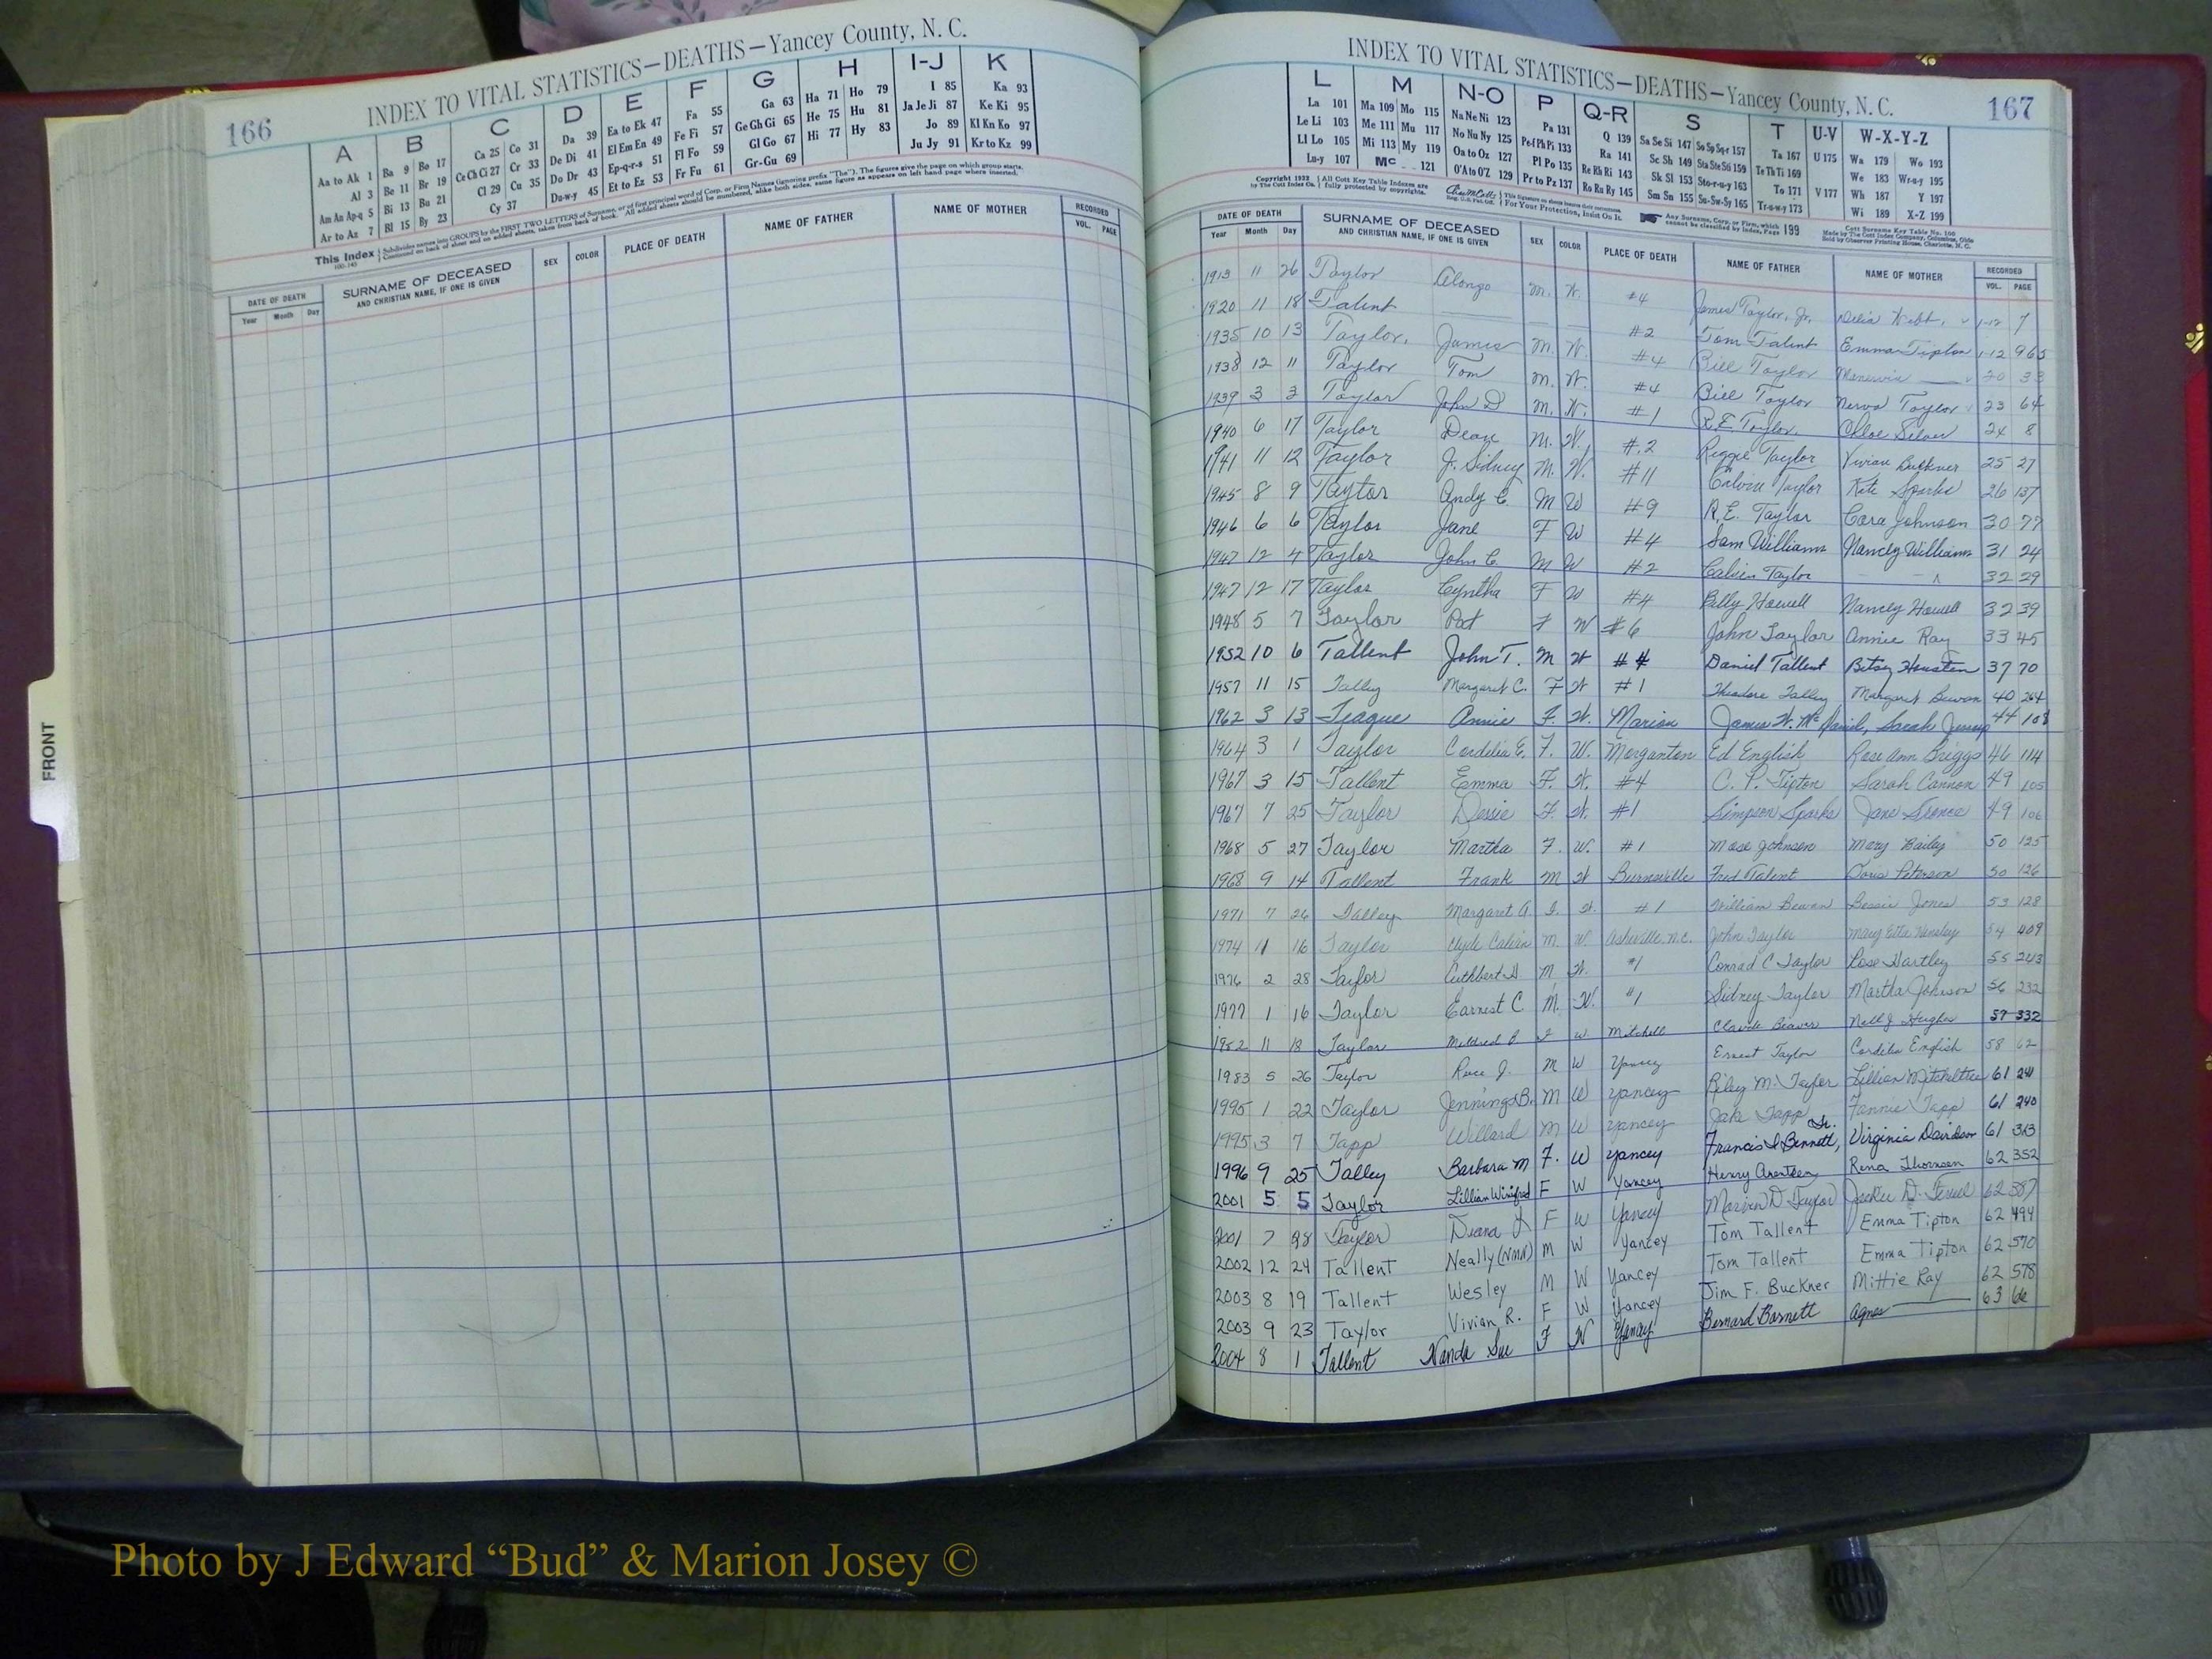 166
INDEX TO VITAL STATISTICS—DEATHS—Yancey County, N. C.
A B C D E F G H I-J K
Aa to Ak 1 Ba 9 Bo 17 Ca 25 Co 31 Da 39 Ea to Ek 47 Fa 55 Ga 63 Ha 71 Ho 79 I 85 Ka 93
Al 3 Be 11 Br 19 Ce Ch Ci 27 Cr 33 De Di 41 El Em En 49 Fe Fi 57 Ge Gh Gi 65 He 75 Hu 81 Ja Je Ji 87 Ke Ki 95
Am As Ap-q 5 Bi 13 Bu 21 Cl 29 Cu 35 Do Dr 43 Ep-q-r-s 51 Fl Fo 59 Gl Go 67 Hi 77 Hy 83 Jo 89 Kl Kn Ko 97
Ar to Az 7 Bl 15 By 23 Cy 37 Du-w-y 45 Et to Ez 53 Fr Fu 61 Gr-Gu 69 Ju Jy 91 Kr to Kz 99
This Index Subdivides names into GROUPS by the FIRST TWO LETTERS of Surname, or of first principal word of Corp. or Firm Names (ignoring prefix "The"). The figures give the page on which group starts.
Continued on back of sheet and on added sheets, taken from back of book. All added sheets should be numbered, alike both sides, same figure as appears on left hand page where inserted.
DATE OF DEATH SURNAME OF DECEASED SEX COLOR PLACE OF DEATH NAME OF FATHER NAME OF MOTHER RECORDED
Year Month Day AND CHRISTIAN NAME, IF ONE IS GIVEN VOL. PAGE
FRONT
INDEX TO VITAL STATISTICS—DEATHS—Yancey County, N. C.
167
L M N-O P Q-R S T U-V W-X-Y-Z
La 101 Ma 109 Mo 115 Na Ne Ni 123 Pa 131 Q 139 Sa Se Si 147 So Sp Sq-r 157 Ta 167 U 175 Wa 179 Wo 193
Le Li 103 Me 111 Mu 117 No Nu Ny 125 Pe-f Ph Pi 133 Ra 141 Sc Sh 149 Sta Ste Sti 159 Te Th Ti 169 We 183 Wr-u-y 195
Ll Lo 105 Mi 113 My 119 Oa to Oz 127 Pl Po 135 Re Rh Ri 143 Sk Sl 153 Sto-r-u-y 163 To 171 V 177 Wh 187 Y 197
Lu-y 107 Mc 121 O'A to O'Z 129 Pr to Pz 137 Ro Ru Ry 145 Sm Sn 155 Su-Sw-Sy 165 Tr-u-w-y 173 Wi 189 X-Z 199
Copyright 1932 All Cott Key Table Indexes are
by The Cott Index Co. fully protected by copyrights.
For Your Protection, Insist On It.
Any Surname, Corp. or Firm, which
cannot be classified by Index, Page 199
Cott Surname Key Table No. 100
Made by The Cott Index Company, Columbus, Ohio
Sold by Observer Printing House, Charlotte, N. C.
DATE OF DEATH SURNAME OF DECEASED SEX COLOR PLACE OF DEATH NAME OF FATHER NAME OF MOTHER RECORDED
Year Month Day AND CHRISTIAN NAME, IF ONE IS GIVEN VOL. PAGE
1913 11 26 Taylor Alonzo M. W. #4 James Taylor, Jr. Delia Webb 1-12 7
1920 11 18 Talent #2 Tom Talent Emma Tipton 1-12 965
1935 10 13 Taylor, James M. W. #4 Bill Taylor Manervia 20 33
1938 12 11 Taylor Tom M. W. #4 Bill Taylor Nerva Taylor 23 64
1939 3 3 Taylor John D M. W. #1 R.E. Taylor Chloe Silver 24 8
1940 6 17 Taylor Dean M. W. #2 Reggie Taylor Vivian Buckner 25 27
1941 11 12 Taylor J. Sidney M. W. #11 Calvin Taylor Kate Sparks 26 137
1945 8 9 Taylor Andy C. M W #9 R.E. Taylor Cora Johnson 30 77
1946 6 6 Taylor Jane F W #4 Sam Williams Nancy Williams 31 24
1947 12 4 Taylor John C. M W #2 Calvin Taylor 32 29
1947 12 17 Taylor Cyntha F W #4 Billy Howell Nancy Howell 32 39
1948 5 7 Taylor Pat F W #6 John Taylor Annie Ray 33 45
1952 10 6 Tallent John T. M W #4 Daniel Tallent Betsy Housten 37 70
1957 11 15 Talley Margaret C. F W #1 Theodore Talley Margaret Bewan 40 264
1962 3 13 Teague Annie F. W. Marion James W. McDaniel, Sarah Jessup 44 108
1964 3 1 Taylor Cordelia E. F. W. Morganton Ed English Rose Ann Briggs 46 114
1967 3 15 Tallent Emma F. W. #4 C. P. Tipton Sarah Cannon 49 105
1967 7 25 Taylor Dessie F. W. #1 Simpson Sparks Jane 49 106
1968 5 27 Taylor Martha F. W. #1 Mose Johnson Mary Bailey 50 125
1968 9 14 Tallent Frank M W Burnsville Fred Talent Doris Peterson 50 126
1971 7 26 Talley Margaret A F. W. #1 William Bewan Bessie Jones 53 128
1974 11 16 Taylor Clyde Calvin M. W. Asheville, N.C. John Taylor Mary Etta Hensley 54 409
1976 2 28 Taylor Cuthbert H M W. #1 Conrad C Taylor Rose Hartley 55 243
1977 1 16 Taylor Earnest C. M. W. #1 Sidney Taylor Martha Johnson 56 232
1982 11 18 Taylor Mildred B F W. Mitchell Claude Beaver Nell J Hughes 57 332
1983 5 26 Taylor J. M W Yancey Ernest Taylor Cordelia English 58 62
1995 1 22 Taylor Jennings B. M W Yancey Riley M. Taylor Lillian Mitcheltree 61 241
1995 3 7 Tapp Willard M W Yancey Jake Tapp Fannie Tapp 61 240
1996 9 25 Talley Barbara M F. W Yancey Francis I Bennett, Sr. Virginia Davidson 61 313
2001 5 5 Taylor Lillian Winifred F W Yancey Henry Arentzen Rena Thornsen 62 352
2001 7 28 Taylor Diana F W Yancey Marvin D Taylor Jackie D. 62 387
2002 12 24 Tallent Neally (NMN) M W Yancey Tom Tallent Emma Tipton 62 494
2003 8 19 Tallent Wesley M W Yancey Tom Tallent Emma Tipton 62 570
2003 9 23 Taylor Vivian R. F W Yancey Jim F. Buckner Mittie Ray 62 578
2004 8 1 Tallent Wanda Sue F W Yancey Bernard Barnett Agnes 63 66
Photo by J Edward “Bud” & Marion Josey ©